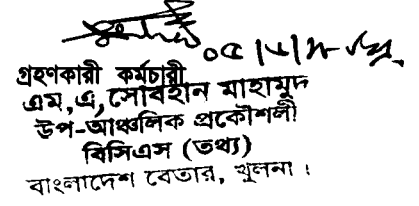 গ্রহণকারী কর্মচারী
এম, এ, সোবহান মাহামুদ
উপ-আঞ্চলিক প্রকৌশলী
বিসিএস (তথ্য)
বাংলাদেশ বেতার, খুলনা।